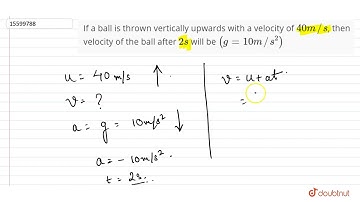 15599788
If a ball is thrown vertically upwards with a velocity of 40m/s, then
velocity of the ball after 2s will be (g = 10m/s²)
u = 40 m/s ↑
v = ?
a = g = 10 m/s² ↓
a = -10 m/s².
t = 2s.
v = u + at.
=
doubtnut